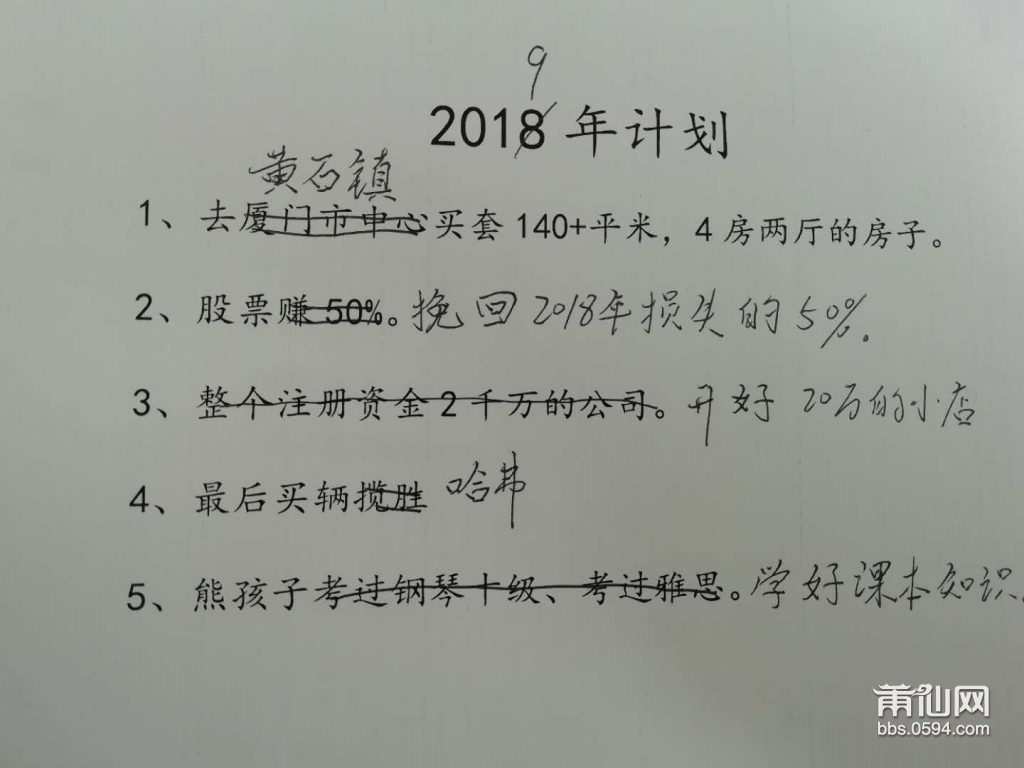 9
2018 年计划
黄石镇
1、去厦门市中心买套 140+平米，4 房两厅的房子。
2、股票赚 50%。挽回2018年损失的50%.
3、整个注册资金 2 千万的公司。开好 20万的小店
4、最后买辆揽胜 哈弗
5、熊孩子考过钢琴十级、考过雅思。学好课本知识.
莆仙网
bbs.0594.com